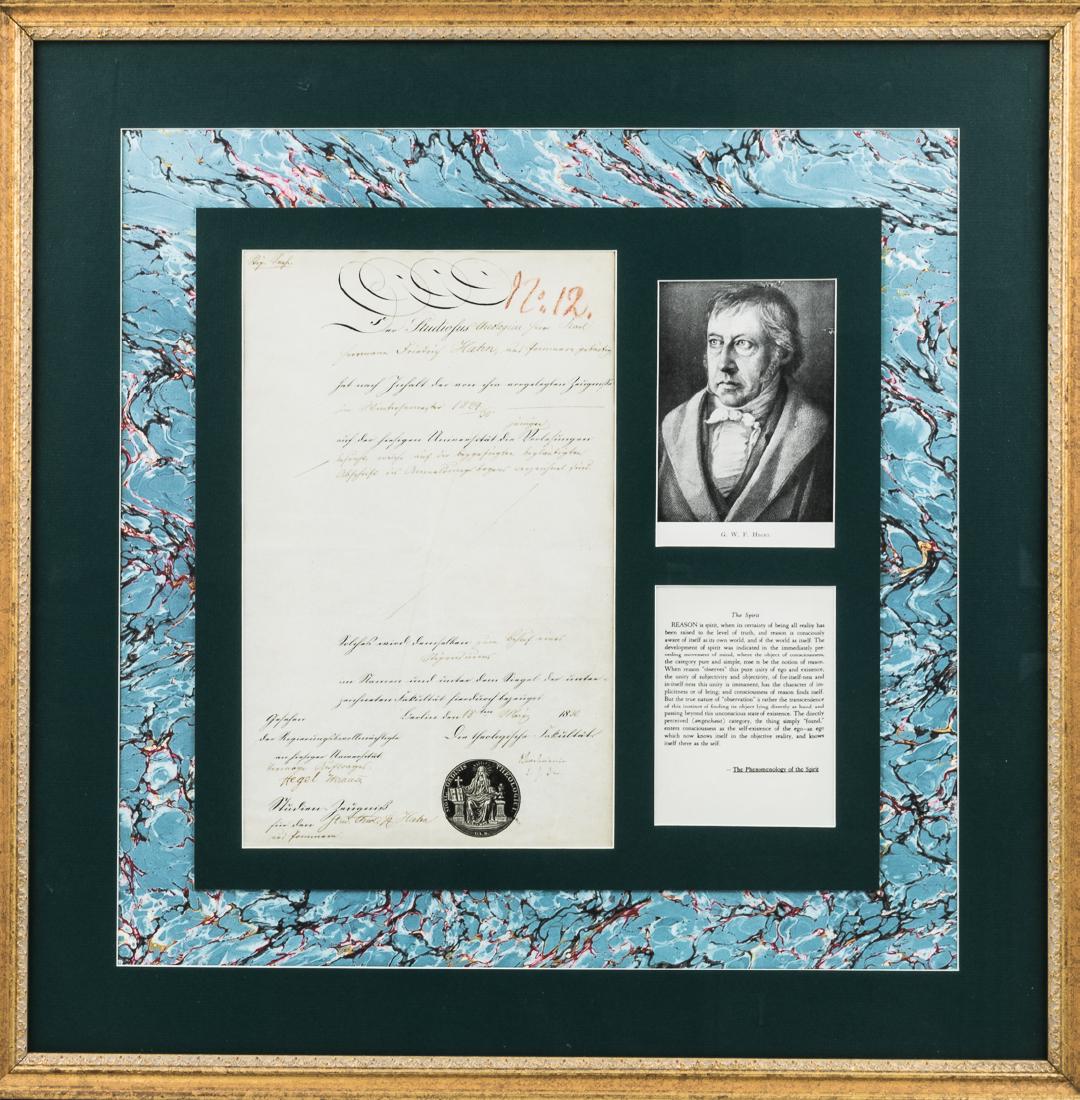 No: 12.
Der Studiosus theologiae Herr Karl
Hermann Friedrich Hahn, aus Pommern gebürtig
hat nach Inhalt der von ihm vorgelegten Zeugnisse
im Wintersemester 1829/30
auf der hiesigen Universität die Vorlesungen
Solches wird demselben zum Behuf eines
Stipendiums
im Namen und unter dem Siegel der unter-
zeichneten Fakultät hierdurch bezeuget
Gesehen
Berlin den 18ten März 1830
der Regierungsbevollmächtigte
Die theologische Fakultät
an hiesiger Universität
Hegel
Studien-Zeugniß
für den Stud. Theol. H. Hahn
aus Pommern
G. W. F. Hegel
The Spirit
REASON is spirit, when its certainty of being all reality has
been raised to the level of truth, and reason is consciously
aware of itself as its own world, and of the world as itself. The
development of spirit was indicated in the immediately pre-
ceding movement of mind, where the object of consciousness,
the category pure and simple, rose to be the notion of reason.
When reason "observes" this pure unity of ego and existence,
the unity of subjectivity and objectivity, of for-itself-ness and
in-itself-ness this unity is immanent, has the character of im-
plicitness or of being; and consciousness of reason finds itself.
But the true nature of "observation" is rather the transcendence
of this instinct of finding its object lying directly at hand, and
passing beyond this unconscious state of existence. The directly
perceived (angeschaut) category, the thing simply "found,"
enters consciousness as the self-existence of the ego—an ego
which now knows itself in the objective reality, and knows
itself there as the self.
– The Phenomenology of the Spirit